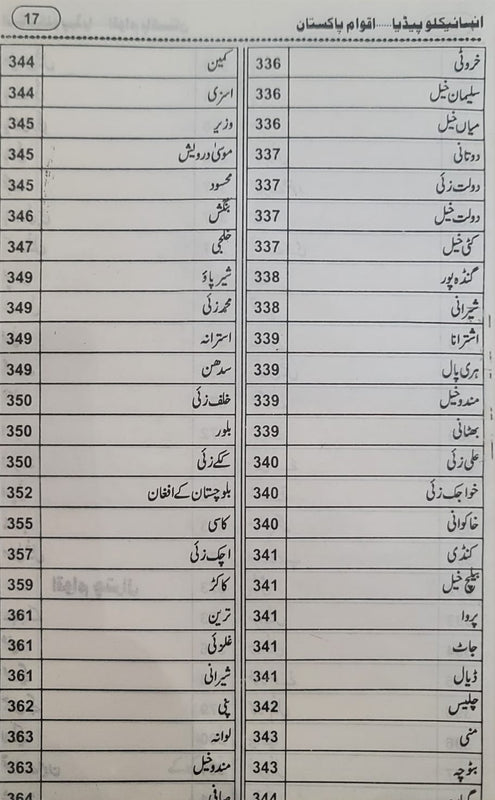 انسائیکلو پیڈیا.....اقوام پاکستان
17
خروٹی 336
سلیمان خیل 336
میاں خیل 336
دوتانی 337
دولت زئی 337
دولت خیل 337
کٹی خیل 337
گنڈہ پور 338
شیرانی 338
اشترانا 339
ہری پال 339
مندوخیل 339
بھٹانی 339
علی زئی 340
خواجک زئی 340
خاکوانی 340
کنڈی 341
بلچ خیل 341
پروا 341
جاٹ 341
ڈیال 341
چلیس 342
منی 343
بلوچہ 343
344
کمین 344
اسزی 344
وزیر 345
موسیٰ درویش 345
محسود 345
بنگش 346
خلجی 347
شیر پاؤ 349
محمد زئی 349
استرانہ 349
سدھن 349
خلف زئی 350
بلور 350
ککے زئی 350
بلوچستان کے افغان 352
کاسی 355
اچک زئی 357
کاکڑ 359
ترین 361
غلزئی 361
شیرانی 361
پنی 362
لوانہ 363
مندوخیل 363
صافی 364